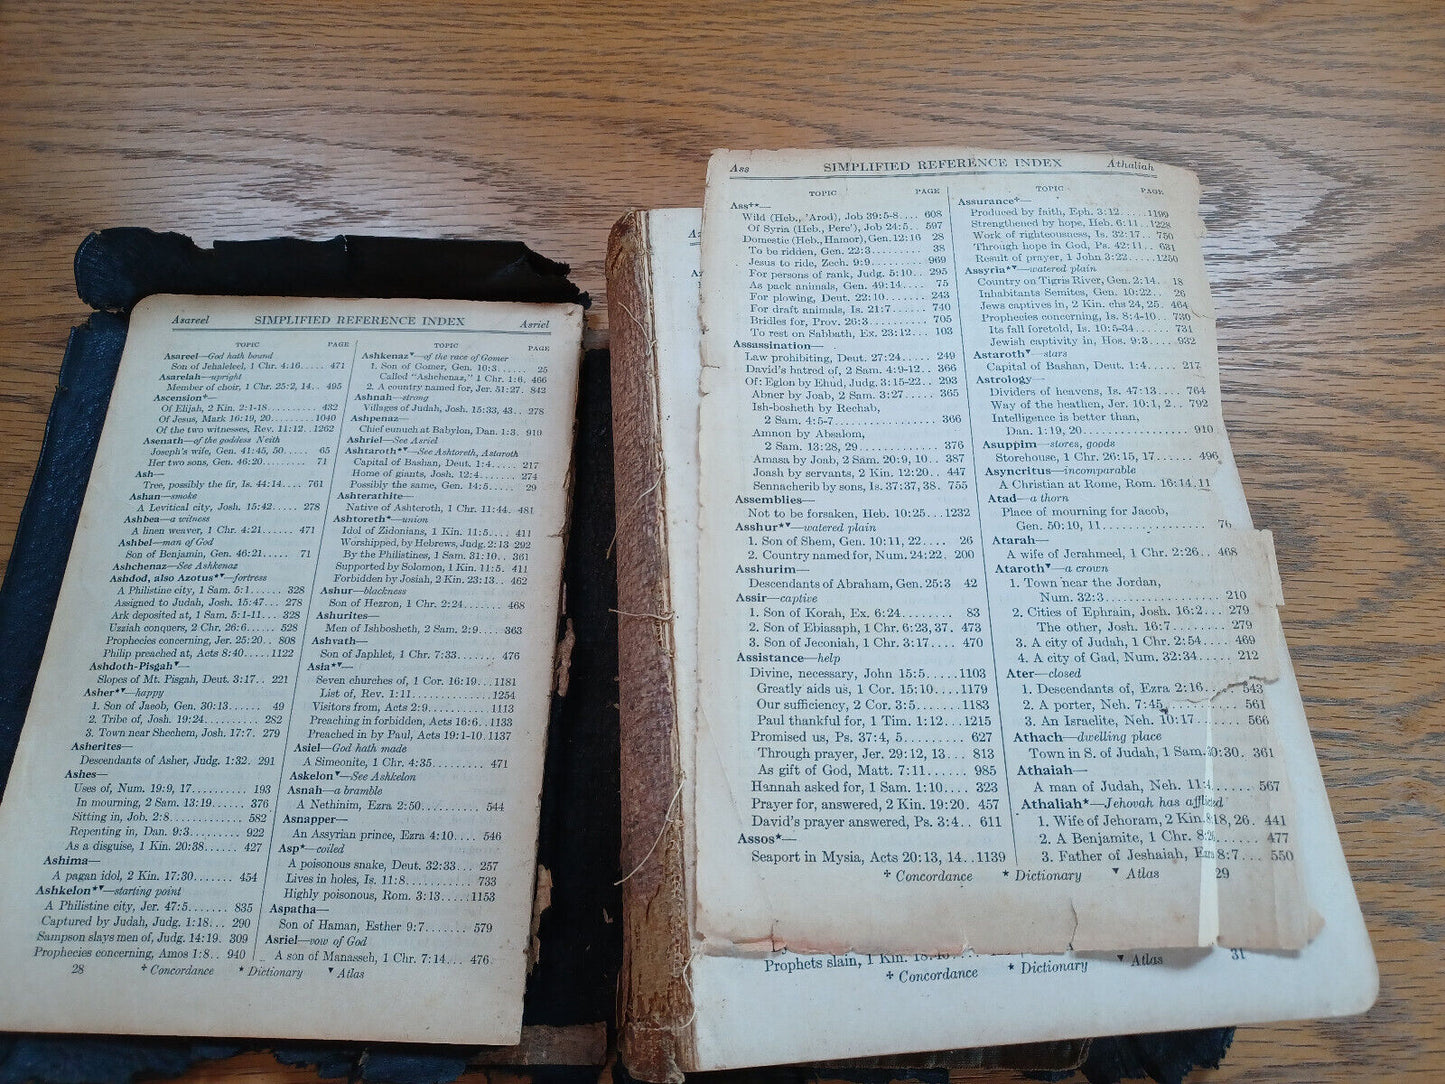 Asareel SIMPLIFIED REFERENCE INDEX Asriel
TOPIC PAGE
Asareel—God hath bound
Son of Jehaleleel, 1 Chr. 4:16..... 471
Asarelah—upright
Member of choir, 1 Chr. 25:2, 14.. 495
Ascension✢—
Of Elijah, 2 Kin. 2:1-18........... 432
Of Jesus, Mark 16:19, 20.......... 1040
Of the two witnesses, Rev. 11:12.. 1262
Asenath—of the goddess Neith
Joseph's wife, Gen. 41:45, 50..... 65
Her two sons, Gen. 46:20......... 71
Ash—
Tree, possibly the fir, Is. 44:14.... 761
Ashan—smoke
A Levitical city, Josh. 15:42...... 278
Ashbea—a witness
A linen weaver, 1 Chr. 4:21....... 471
Ashbel—man of God
Son of Benjamin, Gen. 46:21..... 71
Ashchenaz—See Ashkenaz
Ashdod, also Azotus*▼—fortress
A Philistine city, 1 Sam. 5:1...... 328
Assigned to Judah, Josh. 15:47... 278
Ark deposited at, 1 Sam. 5:1-11... 328
Uzziah conquers, 2 Chr. 26:6..... 528
Prophecies concerning, Jer. 25:20.. 808
Philip preached at, Acts 8:40..... 1122
Ashdoth-Pisgah▼—
Slopes of Mt. Pisgah, Deut. 3:17.. 221
Asher*▼—happy
1. Son of Jacob, Gen. 30:13...... 49
2. Tribe of, Josh. 19:24.......... 282
3. Town near Shechem, Josh. 17:7. 279
Asherites—
Descendants of Asher, Judg. 1:32. 291
Ashes—
Uses of, Num. 19:9, 17.......... 193
In mourning, 2 Sam. 13:19....... 376
Sitting in, Job. 2:8.............. 582
Repenting in, Dan. 9:3........... 922
As a disguise, 1 Kin. 20:38....... 427
Ashima—
A pagan idol, 2 Kin. 17:30........ 454
Ashkelon*▼—starting point
A Philistine city, Jer. 47:5....... 835
Captured by Judah, Judg. 1:18... 290
Sampson slays men of, Judg. 14:19. 309
Prophecies concerning, Amos 1:8.. 940
TOPIC PAGE
Ashkenaz▼—of the race of Gomer
1. Son of Gomer, Gen. 10:3...... 25
Called "Ashchenaz," 1 Chr. 1:6. 466
2. A country named for, Jer. 51:27. 842
Ashnah—strong
Villages of Judah, Josh. 15:33, 43.. 278
Ashpenaz—
Chief eunuch at Babylon, Dan. 1:3. 910
Ashriel—See Asriel
Ashtaroth*▼—See Ashtoreth, Astaroth
Capital of Bashan, Deut. 1:4...... 217
Home of giants, Josh. 12:4........ 274
Possibly the same, Gen. 14:5..... 29
Ashterathite—
Native of Ashteroth, 1 Chr. 11:44. 481
Ashtoreth*—union
Idol of Zidonians, 1 Kin. 11:5..... 411
Worshipped, by Hebrews, Judg. 2:13 292
By the Philistines, 1 Sam. 31:10.. 361
Supported by Solomon, 1 Kin. 11:5. 411
Forbidden by Josiah, 2 Kin. 23:13.. 462
Ashur—blackness
Son of Hezron, 1 Chr. 2:24....... 468
Ashurites—
Men of Ishbosheth, 2 Sam. 2:9.... 363
Ashvath—
Son of Japhlet, 1 Chr. 7:33....... 476
Asia*▼—
Seven churches of, 1 Cor. 16:19... 1181
List of, Rev. 1:11............... 1254
Visitors from, Acts 2:9........... 1113
Preaching in forbidden, Acts 16:6.. 1133
Preached in by Paul, Acts 19:1-10. 1137
Asiel—God hath made
A Simeonite, 1 Chr. 4:35......... 471
Askelon▼—See Ashkelon
Asnah—a bramble
A Nethinim, Ezra 2:50........... 544
Asnapper—
An Assyrian prince, Ezra 4:10.... 546
Asp*—coiled
A poisonous snake, Deut. 32:33... 257
Lives in holes, Is. 11:8........... 733
Highly poisonous, Rom. 3:13..... 1153
Aspatha—
Son of Haman, Esther 9:7........ 579
Asriel—vow of God
A son of Manasseh, 1 Chr. 7:14... 476
28 ✢ Concordance * Dictionary ▼ Atlas
Ass SIMPLIFIED REFERENCE INDEX Athaliah
TOPIC PAGE
Ass✢*—
Wild (Heb., 'Arod), Job 39:5-8.... 608
Of Syria (Heb., Pere'), Job 24:5.. 597
Domestic (Heb., Hamor), Gen. 12:16 28
To be ridden, Gen. 22:3......... 38
Jesus to ride, Zech. 9:9.......... 969
For persons of rank, Judg. 5:10.. 295
As pack animals, Gen. 49:14..... 75
For plowing, Deut. 22:10........ 243
For draft animals, Is. 21:7...... 740
Bridles for, Prov. 26:3........... 705
To rest on Sabbath, Ex. 23:12... 103
Assassination—
Law prohibiting, Deut. 27:24..... 249
David's hatred of, 2 Sam. 4:9-12.. 366
Of: Eglon by Ehud, Judg. 3:15-22.. 293
Abner by Joab, 2 Sam. 3:27..... 365
Ish-bosheth by Rechab,
2 Sam. 4:5-7................. 366
Amnon by Absalom,
2 Sam. 13:28, 29............. 376
Amasa by Joab, 2 Sam. 20:9, 10.. 387
Joash by servants, 2 Kin. 12:20.. 447
Sennacherib by sons, Is. 37:37, 38. 755
Assemblies—
Not to be forsaken, Heb. 10:25... 1232
Asshur*▼—watered plain
1. Son of Shem, Gen. 10:11, 22.... 26
2. Country named for, Num. 24:22. 200
Asshurim—
Descendants of Abraham, Gen. 25:3 42
Assir—captive
1. Son of Korah, Ex. 6:24........ 83
2. Son of Ebiasaph, 1 Chr. 6:23, 37. 473
3. Son of Jeconiah, 1 Chr. 3:17.... 470
Assistance—help
Divine, necessary, John 15:5...... 1103
Greatly aids us, 1 Cor. 15:10.... 1179
Our sufficiency, 2 Cor. 3:5...... 1183
Paul thankful for, 1 Tim. 1:12... 1215
Promised us, Ps. 37:4, 5......... 627
Through prayer, Jer. 29:12, 13... 813
As gift of God, Matt. 7:11...... 985
Hannah asked for, 1 Sam. 1:10.... 323
Prayer for, answered, 2 Kin. 19:20. 457
David's prayer answered, Ps. 3:4.. 611
Assos*—
Seaport in Mysia, Acts 20:13, 14.. 1139
TOPIC PAGE
Assurance✢—
Produced by faith, Eph. 3:12..... 1199
Strengthened by hope, Heb. 6:11.. 1228
Work of righteousness, Is. 32:17.. 750
Through hope in God, Ps. 42:11.. 631
Result of prayer, 1 John 3:22..... 1250
Assyria*▼—watered plain
Country on Tigris River, Gen. 2:14. 18
Inhabitants Semites, Gen. 10:22.. 26
Jews captives in, 2 Kin. chs 24, 25. 464
Prophecies concerning, Is. 8:4-10.. 730
Its fall foretold, Is. 10:5-34..... 731
Jewish captivity in, Hos. 9:3.... 932
Astaroth▼—stars
Capital of Bashan, Deut. 1:4..... 217
Astrology—
Dividers of heavens, Is. 47:13.... 764
Way of the heathen, Jer. 10:1, 2.. 792
Intelligence is better than,
Dan. 1:19, 20................ 910
Asuppim—stores, goods
Storehouse, 1 Chr. 26:15, 17...... 496
Asyncritus—incomparable
A Christian at Rome, Rom. 16:14. 11
Atad—a thorn
Place of mourning for Jacob,
Gen. 50:10, 11............... 76
Atarah—
A wife of Jerahmeel, 1 Chr. 2:26.. 468
Ataroth▼—a crown
1. Town near the Jordan,
Num. 32:3................. 210
2. Cities of Ephrain, Josh. 16:2... 279
The other, Josh. 16:7......... 279
3. A city of Judah, 1 Chr. 2:54.... 469
4. A city of Gad, Num. 32:34..... 212
Ater—closed
1. Descendants of, Ezra 2:16..... 543
2. A porter, Neh. 7:45........... 561
3. An Israelite, Neh. 10:17....... 566
Athach—dwelling place
Town in S. of Judah, 1 Sam. 30:30. 361
Athaiah—
A man of Judah, Neh. 11:4....... 567
Athaliah*—Jehovah has afflicted
1. Wife of Jehoram, 2 Kin. 8:18, 26. 441
2. A Benjamite, 1 Chr. 8:26...... 477
3. Father of Jeshaiah, Ezra 8:7... 550
✢ Concordance * Dictionary ▼ Atlas 29
Prophets slain, 1 Kin. 18:40....
✢ Concordance * Dictionary ▼ Atlas 31